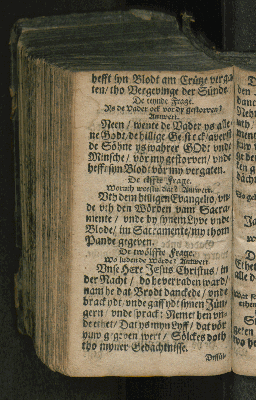 hefft syn Blodt am Crütze verga
ten / tho Vergevinge der Sünde
De teinde Frage.
Ys de Vader ock vör dy gestorven?
Antwort.
Neen / wente de Vader ys alle
ne Godt / de hillige Geist ock / averst
de Söhne ys wahrer GOdt vnde
Minsche / vör my gestorven / vnde
hefft syn Blodt vör my vergaten.
De elffte Frage.
Woruth weestu dat? Antwort.
Vth dem hilligen Evangelio / vn
de vth den Wörden vam Sacra-
mente / vnde by synem Lyve vnde
Blode / im Sacramente / my thom
Pande gegeven.
De twölffte Frage.
Wo luden de Wörde? Antwort.
Vnse Here Jesus Christus / in
der Nacht / do he verraden ward /
nam he dat Brodt danckede / vnde
brack ydt / vnde gaff ydt synen Jün-
gern / vnde sprack: Nemet hen vn-
de ethet / Dat ys myn Lyff / dat vör
juw gegeven wert / Sölckes doth
tho myner Gedächtnisse.